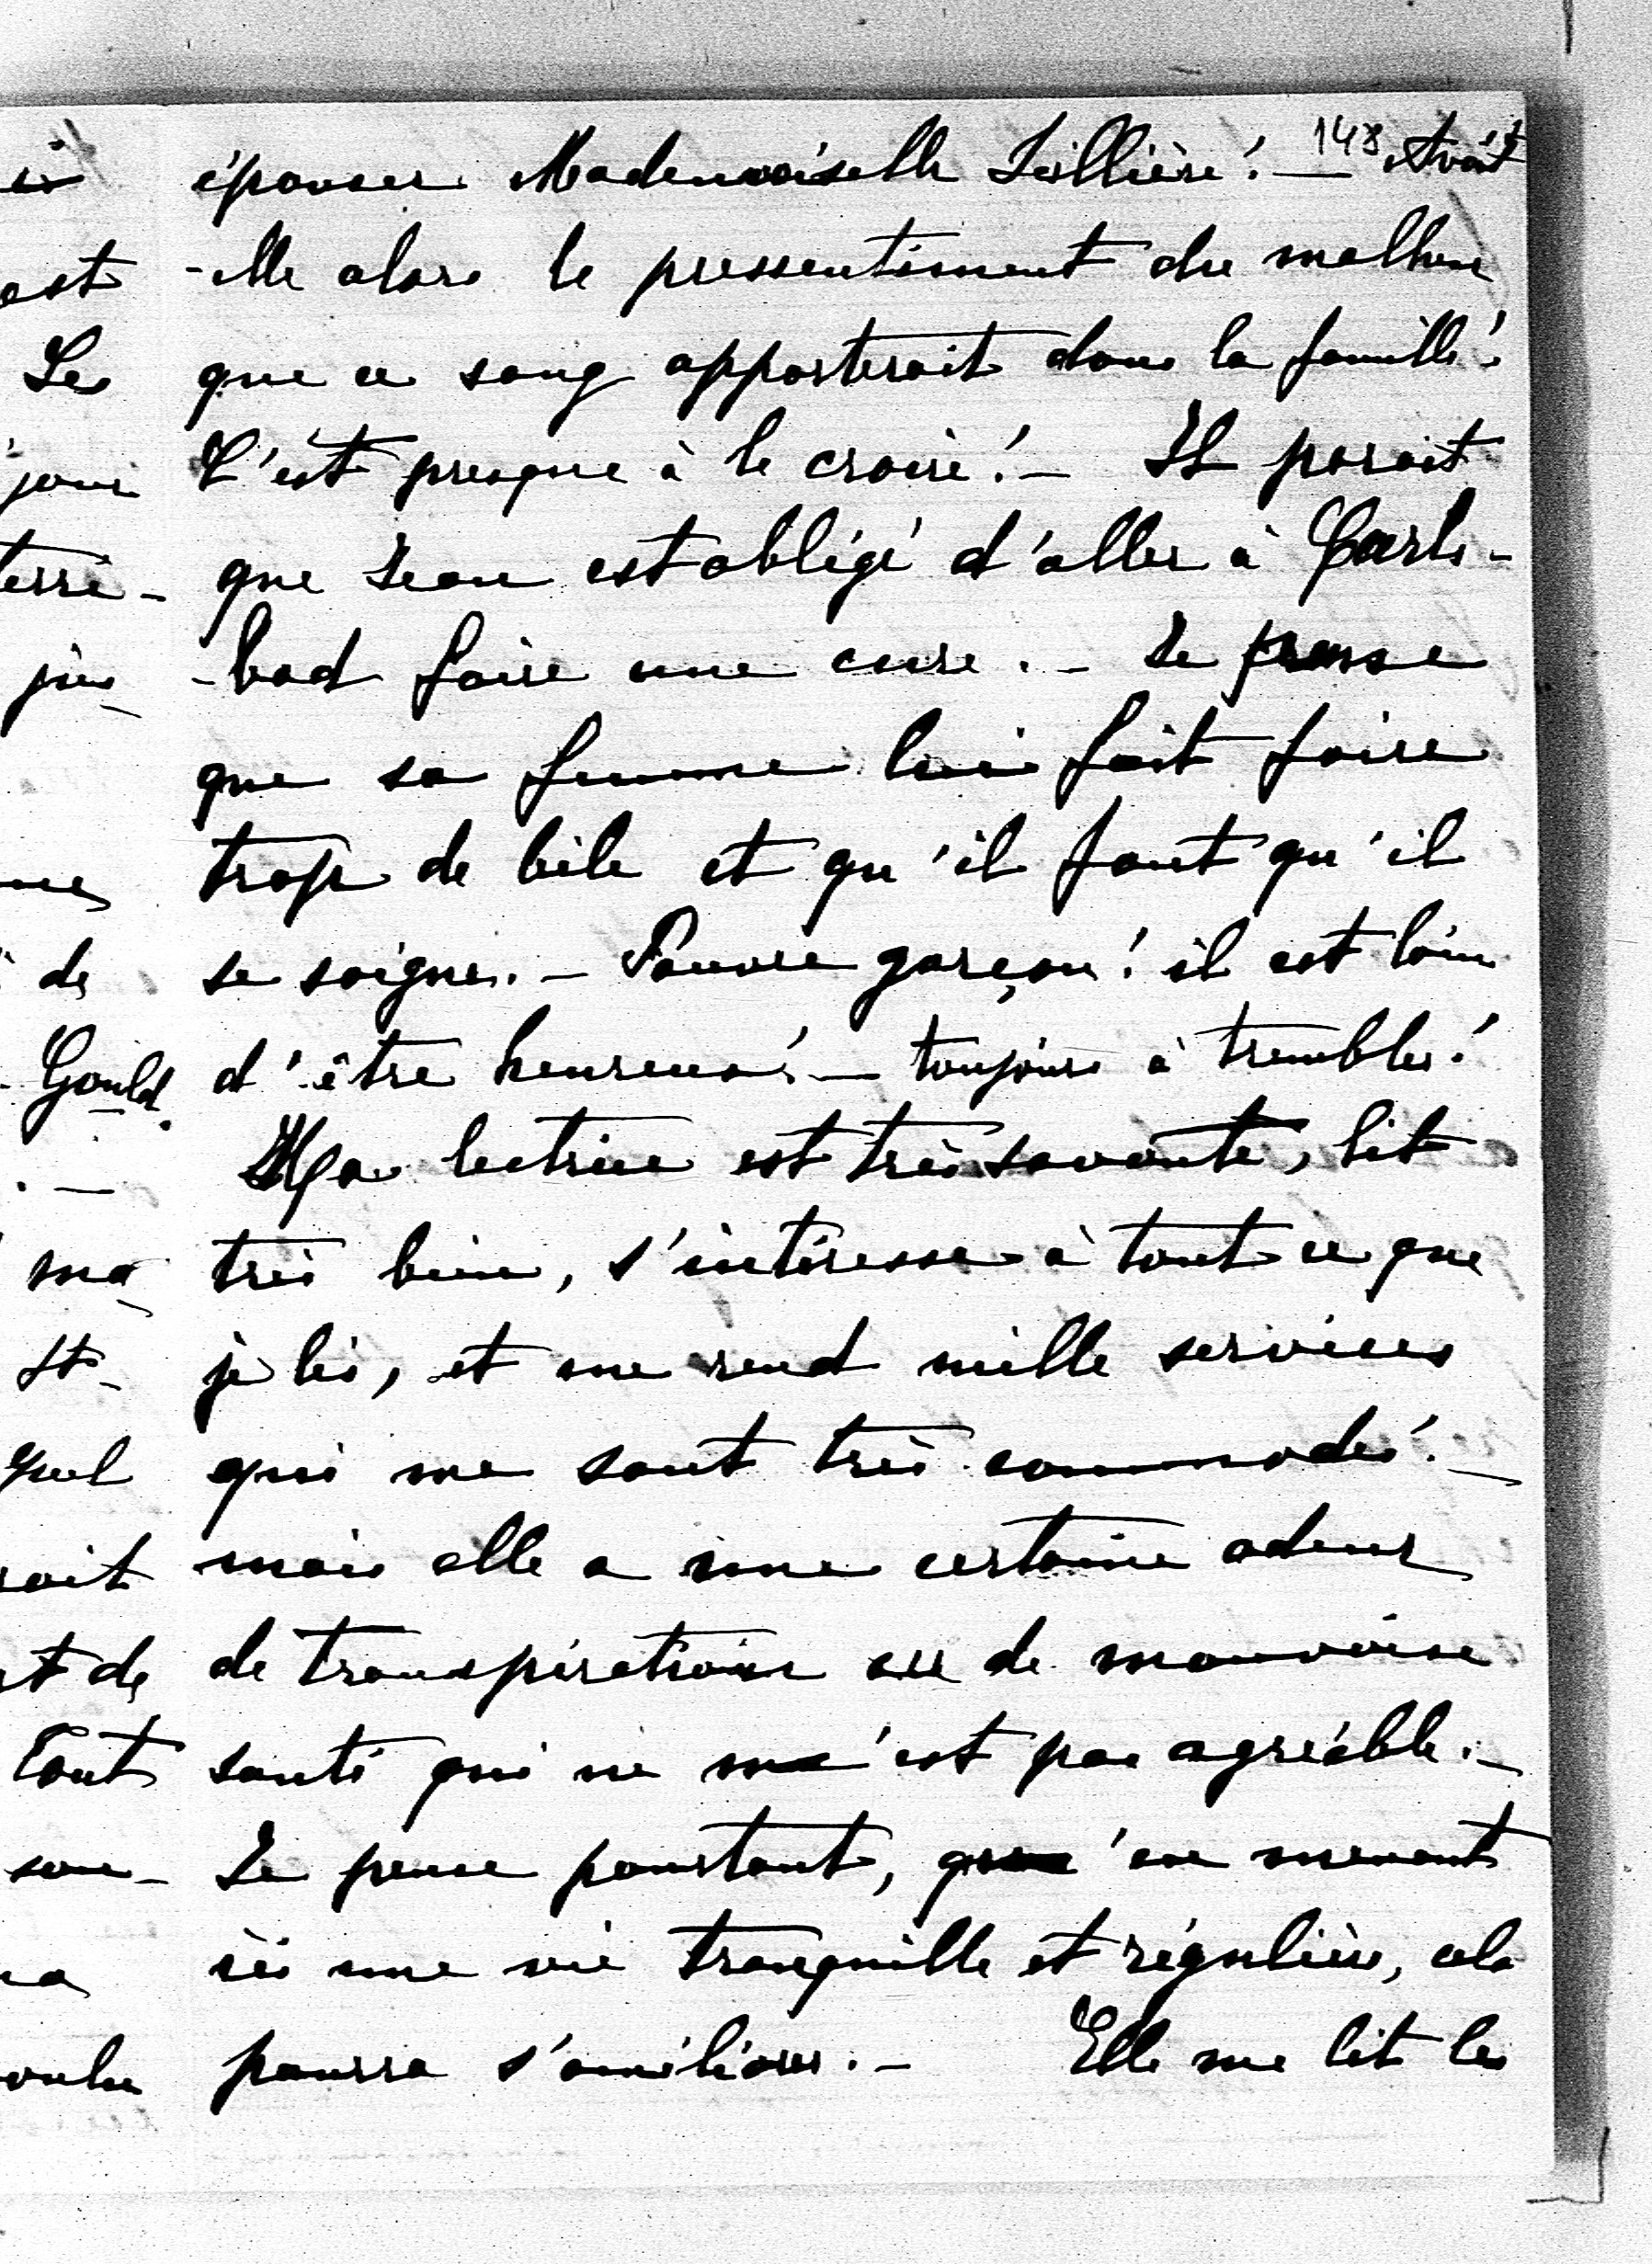 148
épouser Mademoiselle Seillière! — Avait
-elle alors le pressentiment du malheur
que ce sang apporterait dans la famille!
C'est presque à le croire! — Il parait
que Jean est obligé d'aller à Carls-
-bad faire une cure. — Je pense
que sa femme lui fait faire
trop de bile et qu'il faut qu'il
se soigne. — Pauvre garçon! il est loin
d'être heureux! — toujours à trembler!
Ma lectrice est très savante, lit
très bien, s'intéresse à tout ce que
je lis, et me rend mille services
qui me sont très commodes! —
mais elle a une certaine odeur
de transpiration ou de mauvaise
santé qui ne m'est pas agréable. —
Je pense pourtant, qu'en menant
ici une vie tranquille et régulière, cela
pourra s'améliorer. — Elle me lit les
est
Les
jour
terre-
de
Gould.
ma
St-
quel
oit
t de
Tout
sou-
oulu